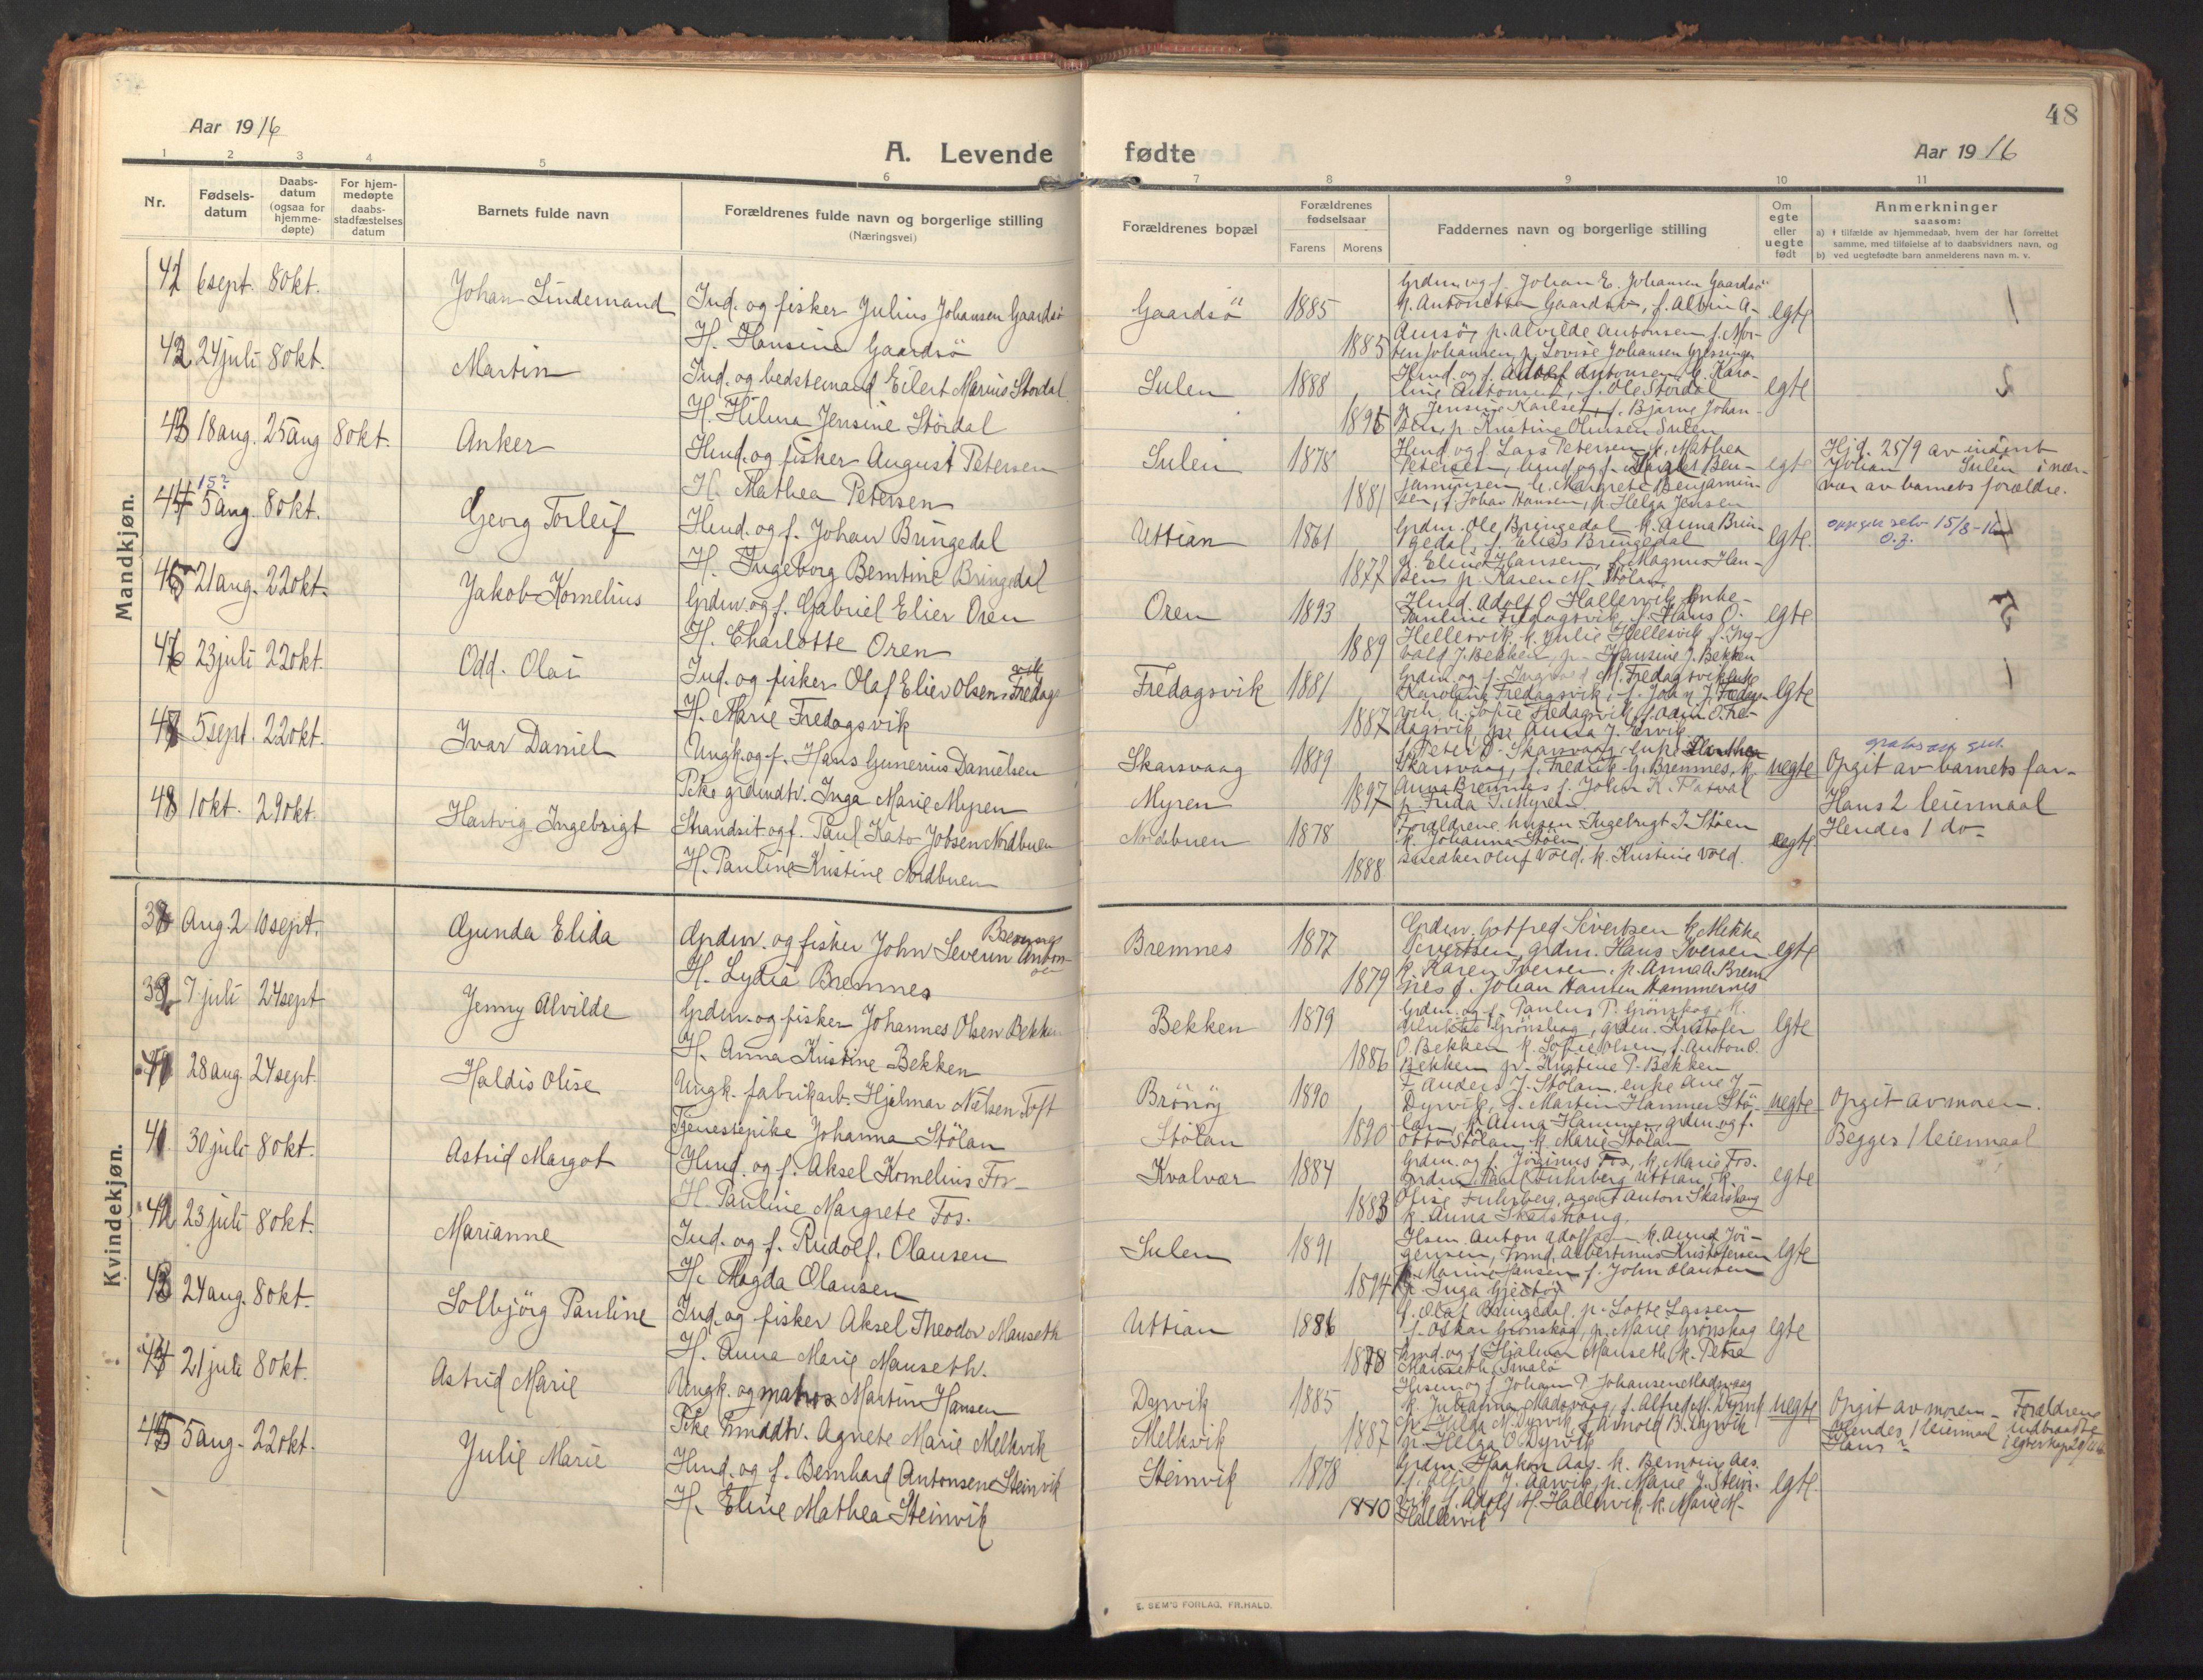 48
Aar 1916
A. Levende
fødte
Aar 1916
1 2 3 4 5 6
7 8 9 10 11
Nr.
Fødsels-
datum
Daabs-
datum
(ogsaa for
hjemme-
døpte)
For hjem-
medøpte
daabs-
stadfæstelses
datum
Barnets fulde navn
Forældrenes fulde navn og borgerlige stilling
(Næringsvei)
Forældrenes bopæl
Forældrenes
fødselsaar
Farens Morens
Faddernes navn og borgerlige stilling
Om
egte
eller
uegte
født
Anmerkninger
saasom:
a) i tilfælde av hjemmedaab, hvem der har forrettet
samme, med tilføielse af to daabsvidners navn, og
b) ved uegtefødte barn anmelderens navn m. v.
Mandkjøn.
41 6 sept. 8 okt. Johan Lindemand Ind. og fisker Julius Johansen Gaardsö
H. Hansine Gaardsö
Gaardsö 1885 1885 egte
Grdm. og f. Johan E. Johansen Gaardsö
42 24 juli 8 okt. Martin Ind. og bedstemand Eilert Marius Stördal
H. Hilma Jensine Stördal
Sulen 1888 egte
p. Jensine Karlsen, f. Bjarne Johan-
sen, p. Kristine Olausen Sulen
43 18 aug. 25 aug 8 okt. Anker Hmd. og fisker August Petersen
H. Mathea Petersen
Sulen 1878 1881 egte
Hmd. og f. Lars Petersen, k. Mathea
sen, f. Johan Hansen, p. Helga Jensen
Hjd. 25/9 av
Johan Sulen i nær-
vær av barnets forældre.
44 15? 5 aug. 8 okt. Georg Torleif Hmd. og f. Johan Bringedal
H. Ingeborg Berntine Bringedal
Uttian 1861 1877 egte.
Grdm. Ole Bringedal k. Anna Brin-
gedal, f. Elias Bringedal
p. Eline Hansen, f. Magnus Han-
sen p. Karen M. Stölan
oppgir selv 15/8-16
45 21 aug. 22 okt. Jakob Kornelius Grdm. og f. Gabriel Elier Oren
H. Charlotte Oren
Oren 1893 1889 egte
Hmd. Adolf O Hallervik enke-
Pauline Fredagsvik f. Hans O.
Hellesvik, k. Julie Hellesvik f. Ing-
vald J. Bekken, p. Hansine J. Bekken
46 23 juli 22 okt. Odd. Olai Ind. og fisker Olaf Elier Olsen Fredags
vik
H. Marie Fredagsvik
Fredagsvik 1881 1887 egte
Karoline Fredagsvik, f. Johan J. Fredags-
dagsvik, p. Anna J. Ervik
47 5 sept. 22 okt. Ivar Daniel Ungk. og f. Hans Gunerius Danielsen
Pike grdmdtr. Inga Marie Myren
Skarsvaag 1889
Myren 1897 uegte
Skarsvaag, f. Fredrik G. Bremnes, k.
Anna Bremnes f. Johan K. Flatval
p. Frida J. Myren
Opgit av barnets far-
Hans 2 leiermaal
Hendes 1 do-
48 1 okt. 29 okt. Hartvig Ingebrigt Strandsit. og f. Paul Kato Jobsen Nordbuen
H. Pauline Kristine Nordbuen
Nordbuen 1878 1888 egte
Forældrene, husm. Ingebrigt J. Stöen
k. Johanna Stöen
snedker Oluf Vold. k. Kristine Vold.
Kvindekjøn.
38 Aug. 2 10 sept. Gunda Elida Grdm. og fisker John Severin Anton-
sen Bremnes
H. Lydia Bremnes
Bremnes 1877 1879 egte
Grdm. Gotfred Sivertsen k. Mekka
Sivertsen, grdm. Hans Iversen
k. Karen Iversen. p. Anna A. Brem-
nes f. Johan Hansen Hammernes
39 7 juli 24 sept Jenny Alvilde Grdm. og fisker Johannes Olsen Bekken
H. Anna Kristine Bekken
Bekken 1879 1886 egte
Grdm. og f. Paulus P. Grönskag, k.
Grönskag, grdm. Kristofer
O. Bekken k. Sofie Olsen, f. Anton O.
Bekken p. Kristine P. Bekken
28 aug. 24 sept. Haldis Olise Ungk. fabrikarb. Hjalmar Nelsen Toft
Tjenestepike Johanna Stölan
Brönöy 1890
Stölan 1890 uegte
F. Anders J. Stölan, enke Ane J-
Dyrvik, f. Martin Hammer Stö-
lan, k. Anna Hammer, grdm. og f.
Otto Stölan k. Marie Stölan
Opgit av moren.
Begges 1 leiermaal
41. 30 juli 8 okt. Astrid Margot Hmd. og f. Aksel Kornelius Fos-
H. Pauline Margrete Fos.
Kvalvær 1884 1883 egte
Grdm. og f. Jörginus Fos, k. Marie Fos.
Olise Fuhrberg, agent Anton Skarshaug
k. Anna Skarshaug,
42 23 juli 8 okt. Marianne Ind. og f. Rudolf. Olausen
H. Magda Olausen
Sulen 1891 1894 egte
k. Anna Jör-
gensen, hmd. Albertinus Kristofersen
k. Marine Hansen f. John Olausen
43 24 aug. 8 okt. Solbjörg Pauline Ind. og fisker Aksel Theodor Mauseth
H. Anna Marie Mauseth.
Uttian 1886 1878 egte
f. Olaf Bringedal, p. Lotte Lassen
f. Oskar Grönskag, p. Marie Grönskag
hmd. og f. Hjalmar Mauseth, k. Petra
Mauseth, Smalö
44 21 juli 8 okt. Astrid Marie Ungk. og matros Martin Hansen
Pike hmddtr. Agnete Marie Melkvik
Dyrvik 1885
Melkvik 1887 uegte
Husm. og f. Johan P. Johansen Madsvaag
k. Julianna Madsvaag, f. Alfred M. Dyrvik
p. Hilda M. Dyrvik, f. Arnold B. Dyrvik
p. Helga O. Dyrvik
Opgit av moren- Forældrene
Hendes 1 leiermaal indtraadte
Hans ? i egteskap
45 5 aug. 22 okt. Julie Marie Hmd. og f. Bernhard Antonsen Steinvik
H. Eline Mathea Steinvik
Steinvik 1878 1880 egte.
Grdm. Haakon Aas. k. Berntine Aas.
J. Aarvik, p. Marie J. Stein-
vik, f. Adolf M. Hallervik, k. Marie M-
Hallervik
E. SEM'S FORLAG, FR.HALD.